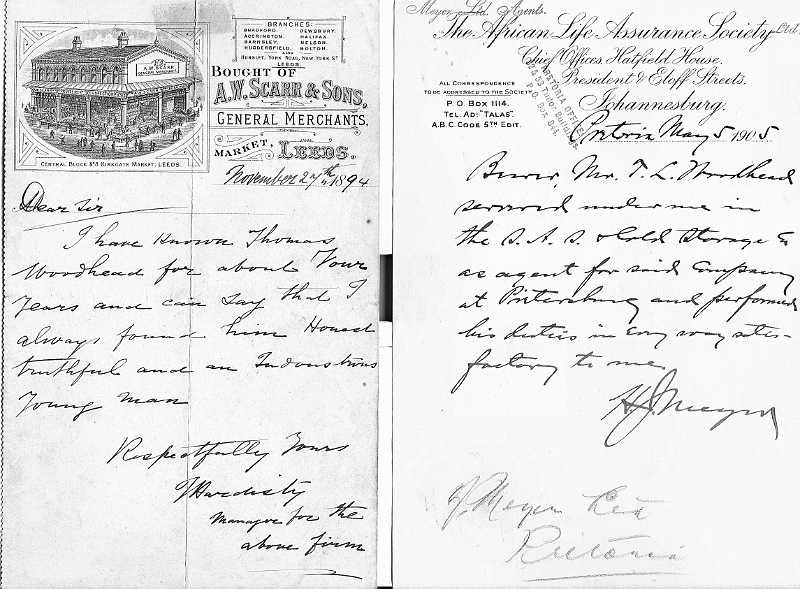 A.W. SCARR
GENERAL MERCHANTS
CENTRAL BLOCK KIRKGATE MARKET, LEEDS.
BRANCHES:
BRADFORD. DEWSBURY.
ACCRINGTON. HALIFAX.
BARNSLEY. NELSON.
HUDDERSFIELD. BOLTON.
ALSO
HUNSLET, YORK ROAD, NEW YORK ST
LEEDS.
BOUGHT OF
A.W. SCARR & SONS,
GENERAL MERCHANTS.
MARKET, LEEDS.
November 27th 1894
Dear Sir
I have Known Thomas
Woodhead for about Four
Years and can Say that I
always found him Honest
truthful and an Indoustrious
Young Man
Respectfully Yours
Hardisty
Manager for the
above firm
Meyer Ltd. Agents.
The African Life Assurance Society Ltd
Chief Offices Hatfield House,
President & Eloff Streets.
Johannesburg.
ALL CORRESPONDENCE
TO BE ADDRESSED TO THE SOCIETY
P.O. BOX 1114.
TEL. AD: "TALAS."
A.B.C. CODE 5TH EDIT.
PRETORIA OFFICE
Buildings
P.O. Box
Pretoria May 5 1905
Bearer, Mr. T. L. Woodhead
serv under me in
the S. A. S. & Cold Storage Co
as agent for said Company
at Pietersburg and performed
his duties in every way satis-
factory to me.
H J Meyer
J. Meyer Ltd
Pretoria